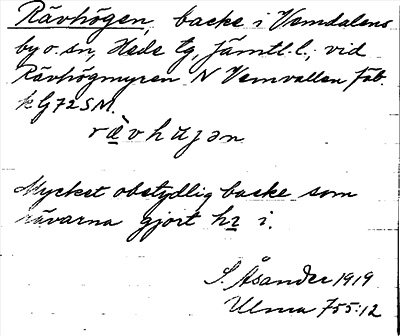 Rävhögen, backe i Vemdalens
by o. sn, Hede tg, Jämtl. l., vid
Rävhögmyren N Vemvallen Fäb.
k G 72 SM.
Mycket obetydlig backe som
rävarna gjort i.
S. Åsander 1919
Ulma 755:12